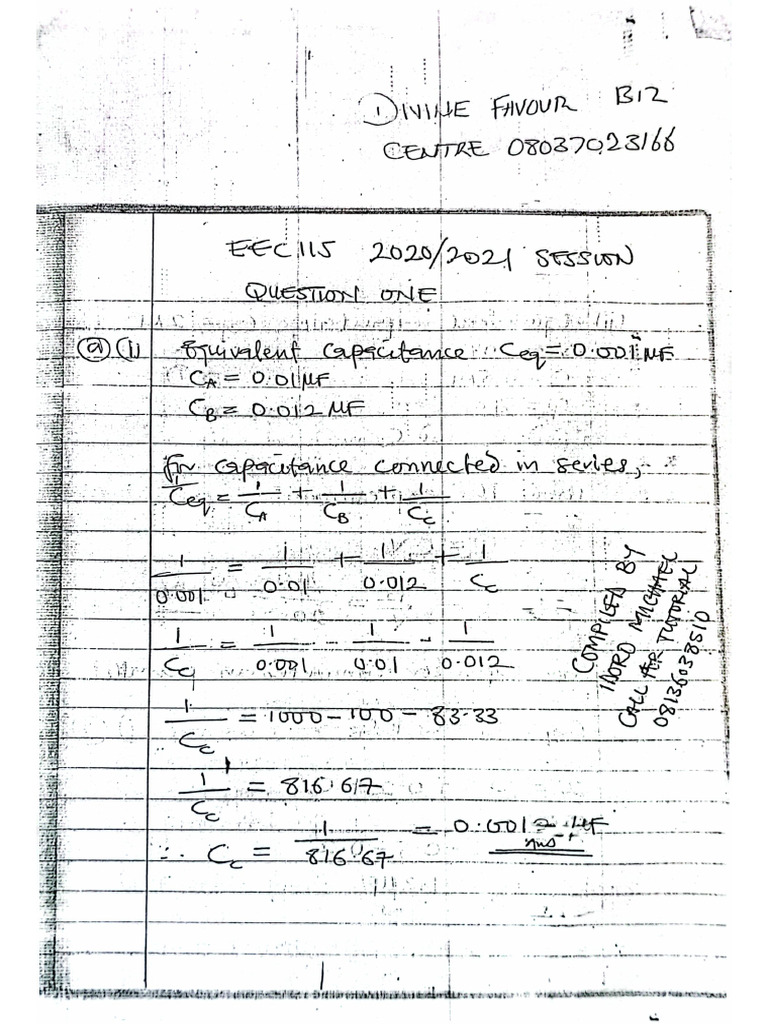 ① DIVINE FAVOUR BIZ
CENTRE 08037023166
EEC115 2020/2021 SESSION
QUESTION ONE
(a) (i) Equivalent capacitance Ceq = 0.001 μF
C_A = 0.01 μF
C_B = 0.012 μF
For capacitance connected in series,
1/Ceq = 1/C_A + 1/C_B + 1/C_C
1/0.001 = 1/0.01 + 1/0.012 + 1/C_C
1/C_C = 1/0.001 - 1/0.01 - 1/0.012
1/C_C = 1000 - 100 - 83.33
1/C_C = 816.67
∴ C_C = 1/816.67 = 0.0012 μF
Ans
COMPILED BY
MICHAEL
CALL FOR TUTORIAL
08136038510